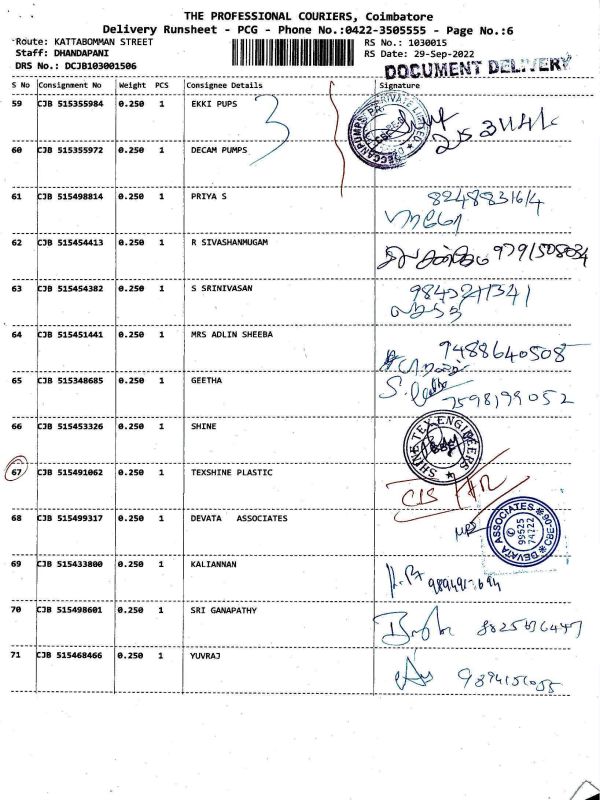 THE PROFESSIONAL COURIERS, Coimbatore
Delivery Runsheet - PCG - Phone No.:0422-3505555 - Page No.:6
Route: KATTABOMMAN STREET RS No.: 1030015
Staff: DHANDAPANI RS Date: 29-Sep-2022
DRS No.: DCJB103001506 DOCUMENT DELIVERY
S No Consignment No Weight PCS Consignee Details Signature
59 CJB 515355984 0.250 1 EKKI PUPS
60 CJB 515355972 0.250 1 DECAM PUMPS
61 CJB 515498814 0.250 1 PRIYA S
62 CJB 515454413 0.250 1 R SIVASHANMUGAM 9791508034
63 CJB 515454382 0.250 1 S SRINIVASAN
64 CJB 515451441 0.250 1 MRS ADLIN SHEEBA 9488640508
65 CJB 515348685 0.250 1 GEETHA 7598199052
66 CJB 515453326 0.250 1 SHINE SHINE TEX ENGINEERS
67 CJB 515491062 0.250 1 TEXSHINE PLASTIC
68 CJB 515499317 0.250 1 DEVATA ASSOCIATES DEVATA ASSOCIATES 99525 74222
69 CJB 515433800 0.250 1 KALIANNAN
70 CJB 515498601 0.250 1 SRI GANAPATHY
71 CJB 515468466 0.250 1 YUVRAJ